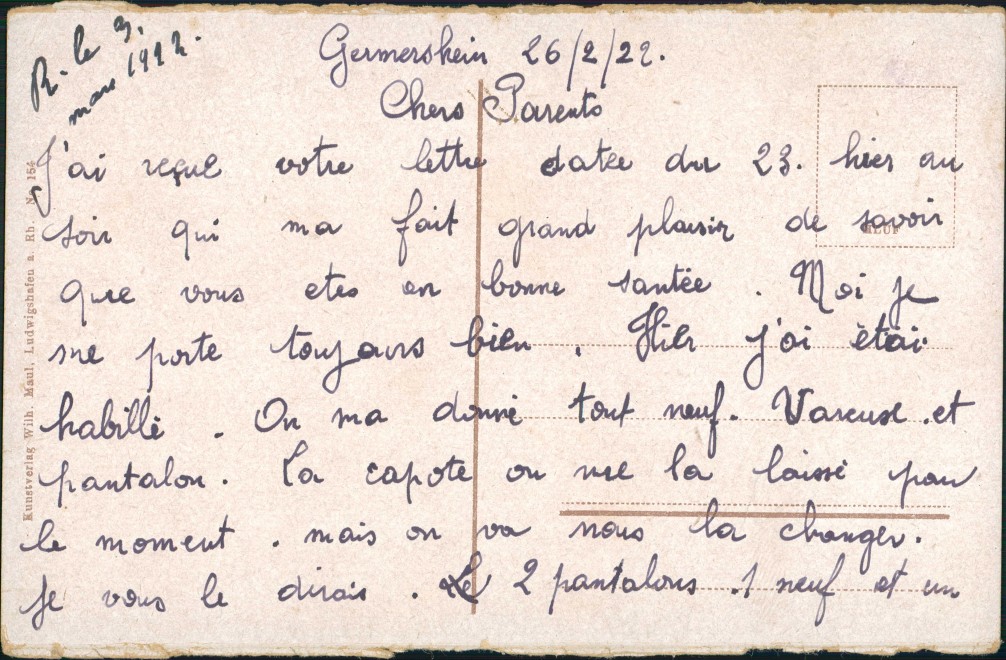 R. le 3.
mars 1922.
Germersheim 26/2/22.
Chers Parents
J'ai reçue votre lettre datée du 23. hier au
soir qui ma fait grand plaisir de savoir
que vous etes en bonne santée. Moi je
me porte toujours bien. Hier j'ai étai
habillé. On ma donné tout neuf. Vareuse et
pantalon. La capote on me la laissé pour
le moment. mais on va nous la changer.
Je vous le dirais. Le 2 pantalons. 1 neuf et un
Kunstverlag Wilh. Maul, Ludwigshafen a. Rh. No. 154